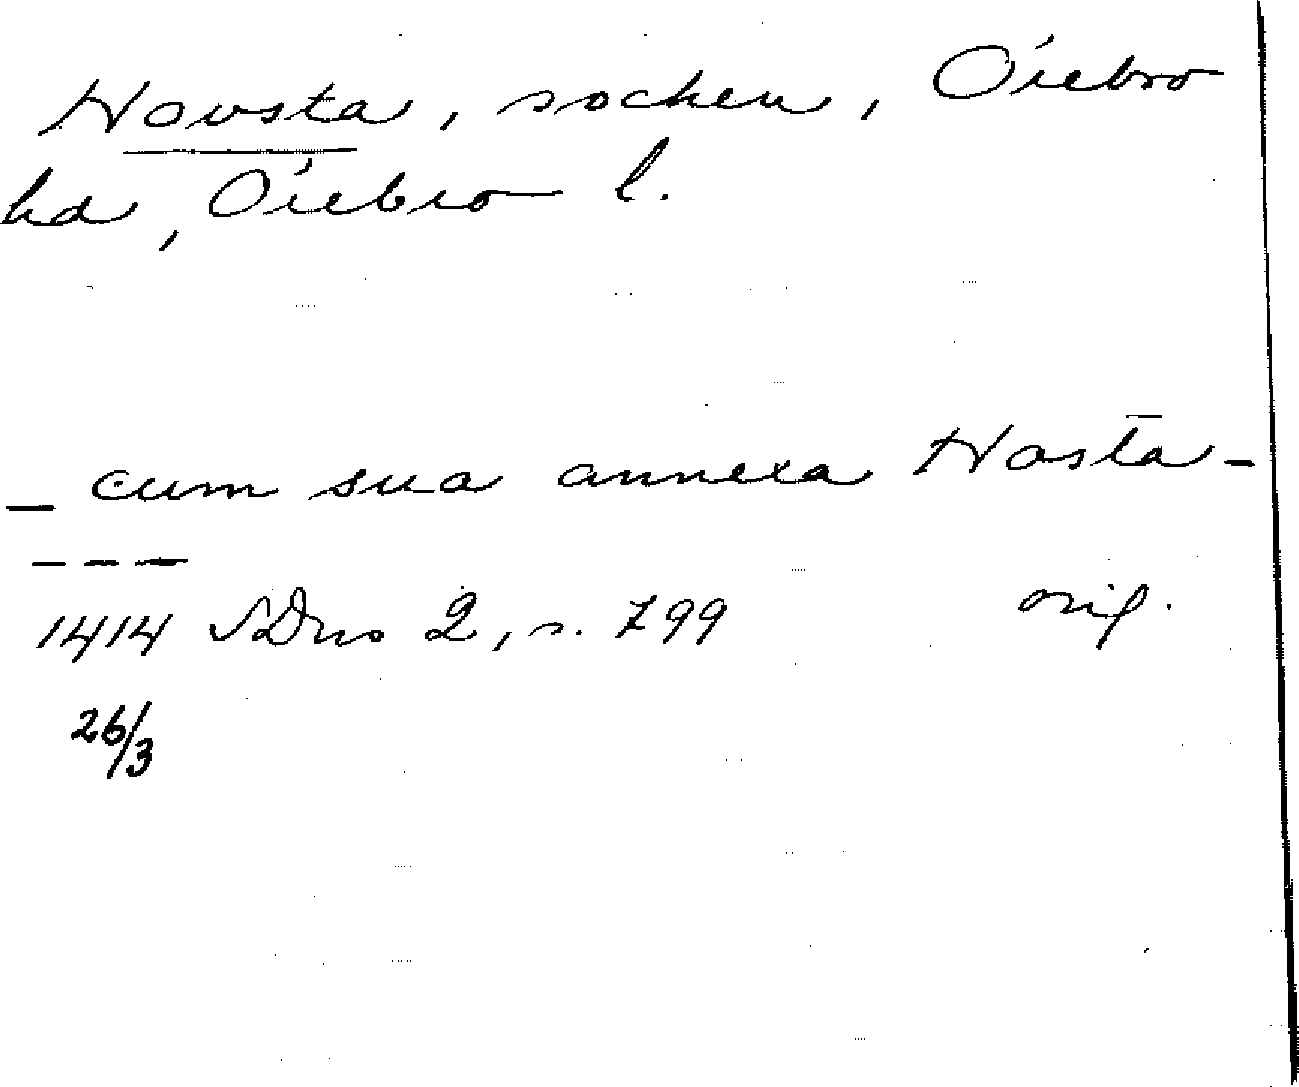 Hovsta, socken, Örebro
hd, Örebro l.
– cum sua annexa Hosta -
- - -
1414 SDns 2, s. 799 orig.
26/3